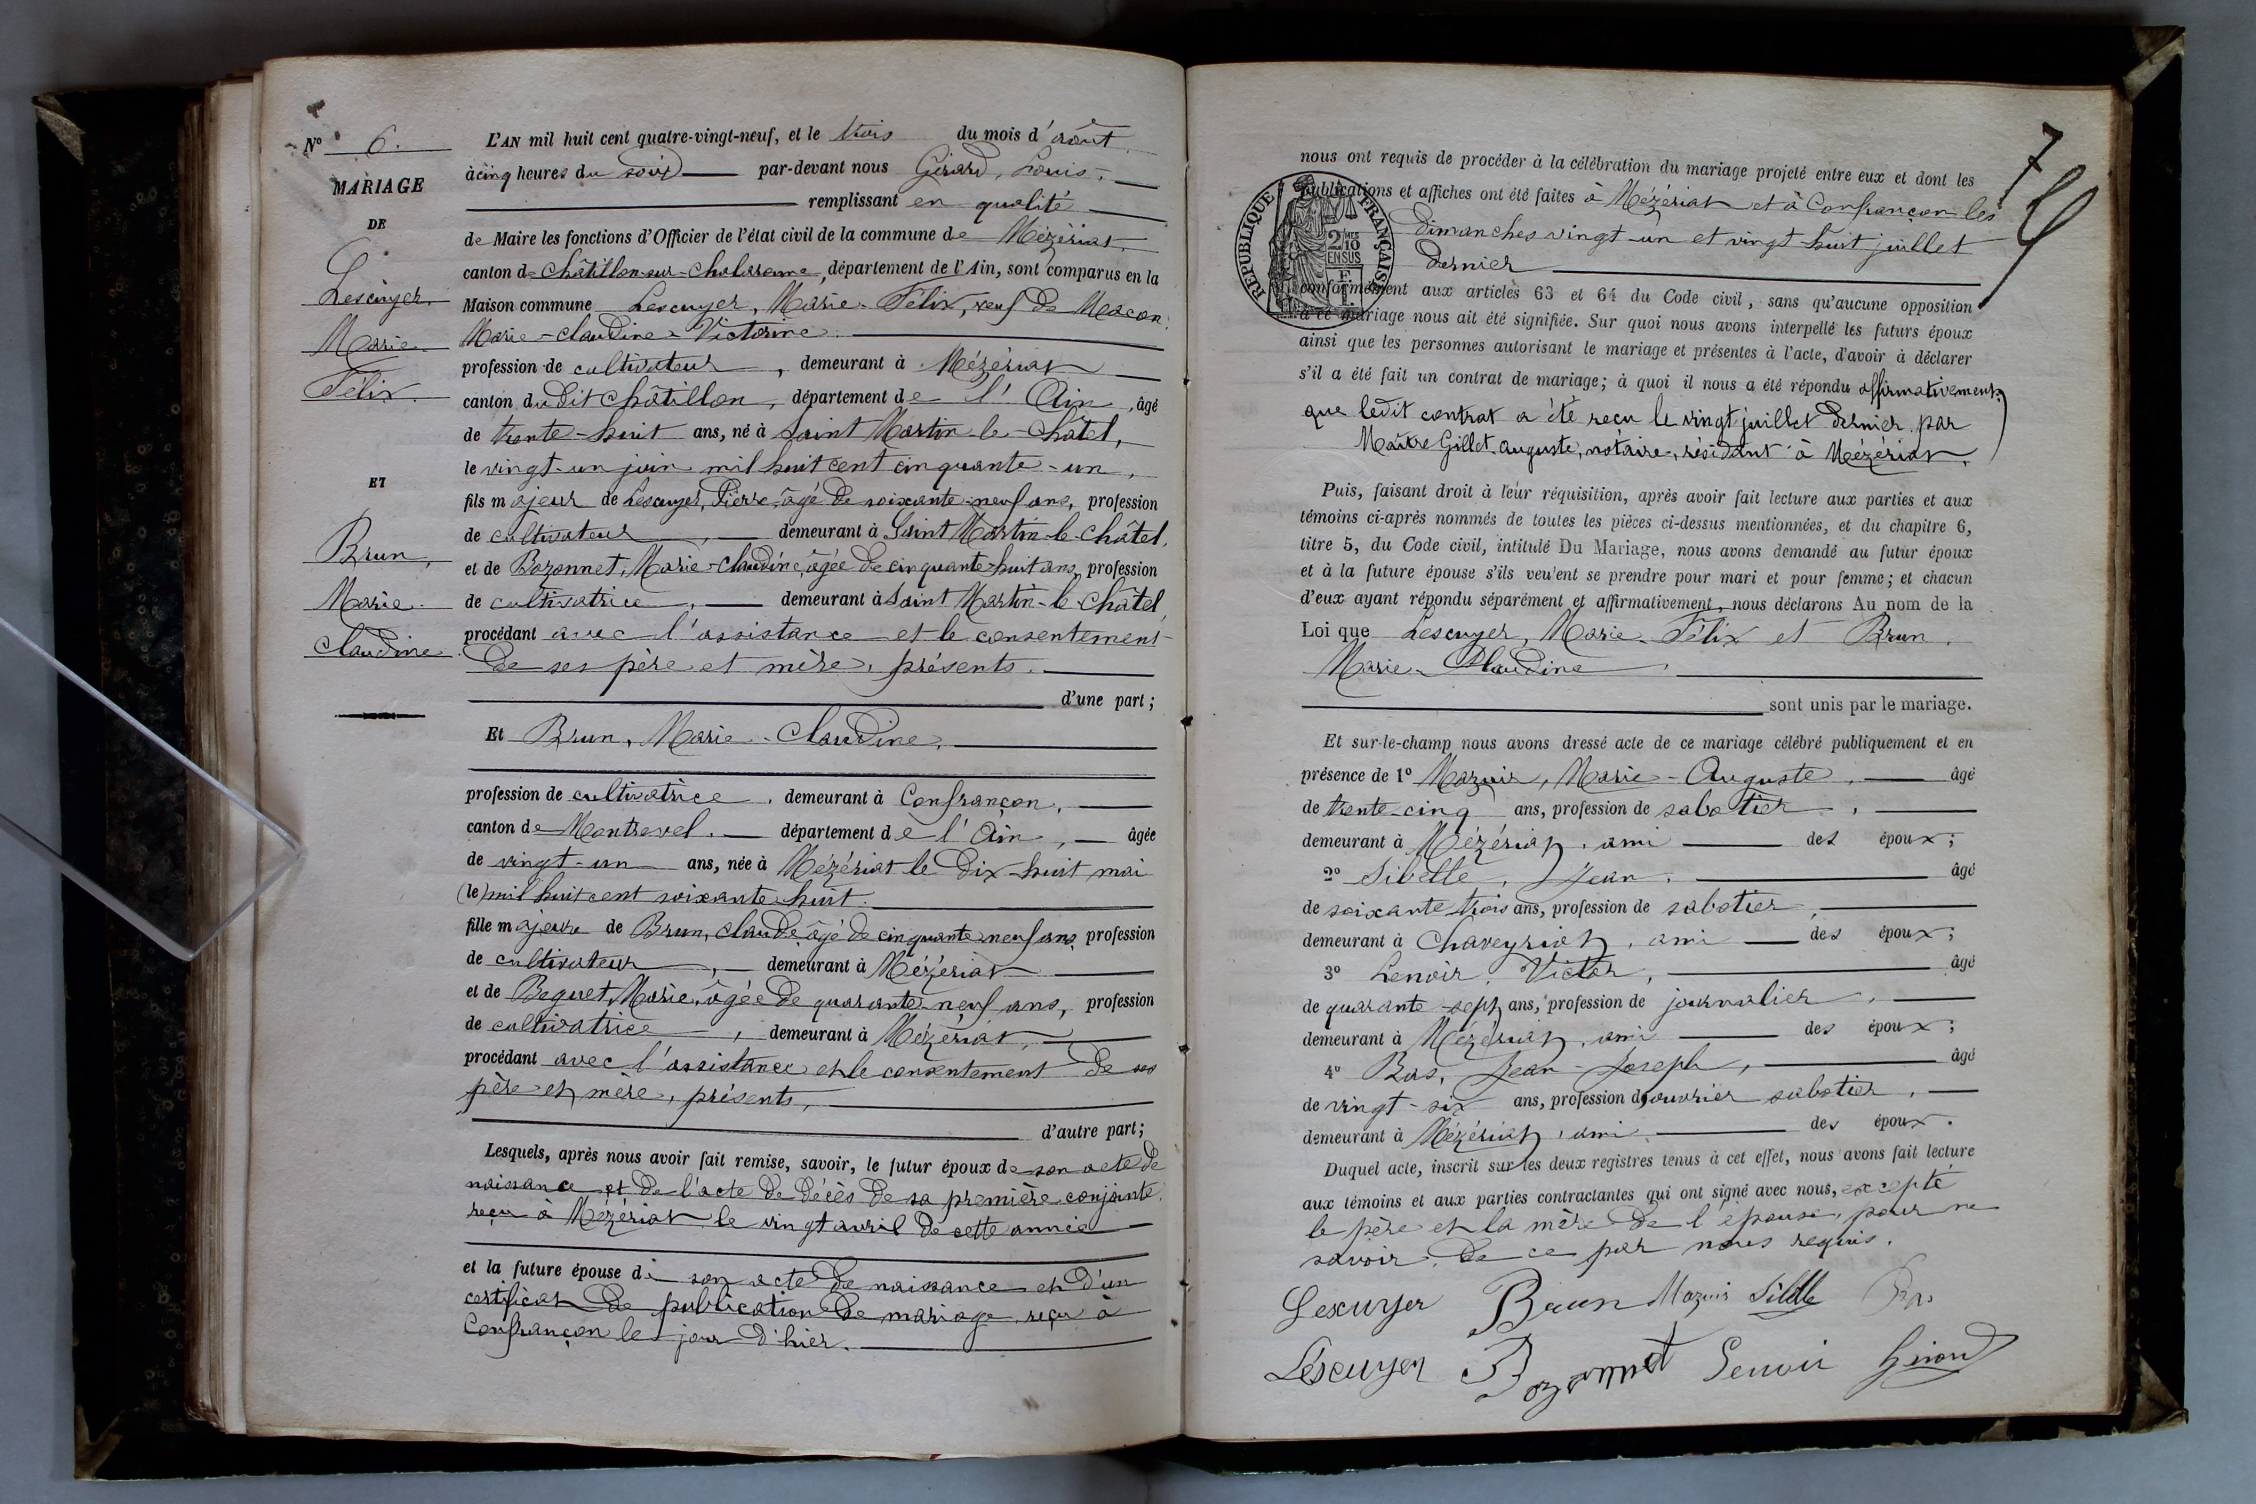 N° 6.
MARIAGE
DE
Lescuyer
Marie
Félix.
ET
Brun,
Marie
Claudine
L'AN mil huit cent quatre-vingt-neuf, et le trois du mois d'août
à cinq heures du soir par-devant nous Gérard, Louis,
remplissant en qualité
de Maire les fonctions d'Officier de l'état civil de la commune de Mézériat,
canton de Châtillon-sur-Chalaronne, département de l'Ain, sont comparus en la
Maison commune Lescuyer, Marie-Félix, veuf de Macon,
Marie-Claudine-Victorine
profession de cultivateur, demeurant à Mézériat
canton dudit Châtillon, département de l'Ain, âgé
de trente-huit ans, né à Saint Martin-le-Châtel,
le vingt-un juin mil huit cent cinquante-un,
fils majeur de Lescuyer, Pierre, âgé de soixante-neuf ans, profession
de cultivateur, demeurant à Saint Martin-le-Châtel,
et de Bozonnet, Marie-Claudine, âgée de cinquante-huit ans, profession
de cultivatrice, demeurant à Saint Martin-le-Châtel,
procédant avec l'assistance et le consentement
de ses père et mère, présents.
d'une part;
Et Brun, Marie-Claudine,
profession de cultivatrice, demeurant à Confrançon,
canton de Montrevel, département de l'Ain, âgée
de vingt-un ans, née à Mézériat le dix-huit mai
(le) mil huit cent soixante huit.
fille majeure de Brun, Claude, âgé de cinquante-neuf ans, profession
de cultivateur, demeurant à Mézériat
et de Beguet, Marie, âgée de quarante-neuf ans, profession
de cultivatrice, demeurant à Mézériat,
procédant avec l'assistance et le consentement de ses
père et mère, présents,
d'autre part;
Lesquels, après nous avoir fait remise, savoir, le futur époux de son acte de
naissance et de l'acte de décès de sa première conjointe,
reçu à Mézériat le vingt avril de cette année
et la future épouse de son acte de naissance et d'un
certificat de publication de mariage reçu à
Confrançon le jour d'hier.
7
nous ont requis de procéder à la célébration du mariage projeté entre eux et dont les
publications et affiches ont été faites à Mézériat et à Confrançon les
dimanches vingt-un et vingt-huit juillet
dernier
RÉPUBLIQUE FRANÇAISE
2/10
EN SUS
conformément aux articles 63 et 64 du Code civil, sans qu'aucune opposition
à ce mariage nous ait été signifiée. Sur quoi nous avons interpellé les futurs époux
ainsi que les personnes autorisant le mariage et présentes à l'acte, d'avoir à déclarer
s'il a été fait un contrat de mariage; à quoi il nous a été répondu affirmativement,
que ledit contrat a été reçu le vingt juillet dernier par
Maître Gillet, Auguste, notaire, résidant à Mézériat.
Puis, faisant droit à leur réquisition, après avoir fait lecture aux parties et aux
témoins ci-après nommés de toutes les pièces ci-dessus mentionnées, et du chapitre 6,
titre 5, du Code civil, intitulé Du Mariage, nous avons demandé au futur époux
et à la future épouse s'ils veulent se prendre pour mari et pour femme; et chacun
d'eux ayant répondu séparément et affirmativement, nous déclarons Au nom de la
Loi que Lescuyer, Marie-Félix et Brun,
Marie-Claudine
sont unis par le mariage.
Et sur-le-champ nous avons dressé acte de ce mariage célébré publiquement et en
présence de 1° Mazuir, Marie-Auguste, âgé
de trente-cinq ans, profession de sabotier,
demeurant à Mézériat, ami des époux;
2° Sibelle, Jean, âgé
de soixante trois ans, profession de sabotier,
demeurant à Chaveyriat, ami des époux;
3° Lenoir, Victor, âgé
de quarante-sept ans, profession de journalier,
demeurant à Mézériat, ami des époux;
4° Bas, Jean-Joseph, âgé
de vingt-six ans, profession d'ouvrier sabotier,
demeurant à Mézériat, ami des époux.
Duquel acte, inscrit sur les deux registres tenus à cet effet, nous avons fait lecture
aux témoins et aux parties contractantes qui ont signé avec nous, excepté
le père et la mère de l'épouse, pour ne
savoir, de ce par nous requis.
Lescuyer Brun Mazuir Sibelle Bas
Lescuyer Bozonnet Lenoir Girard